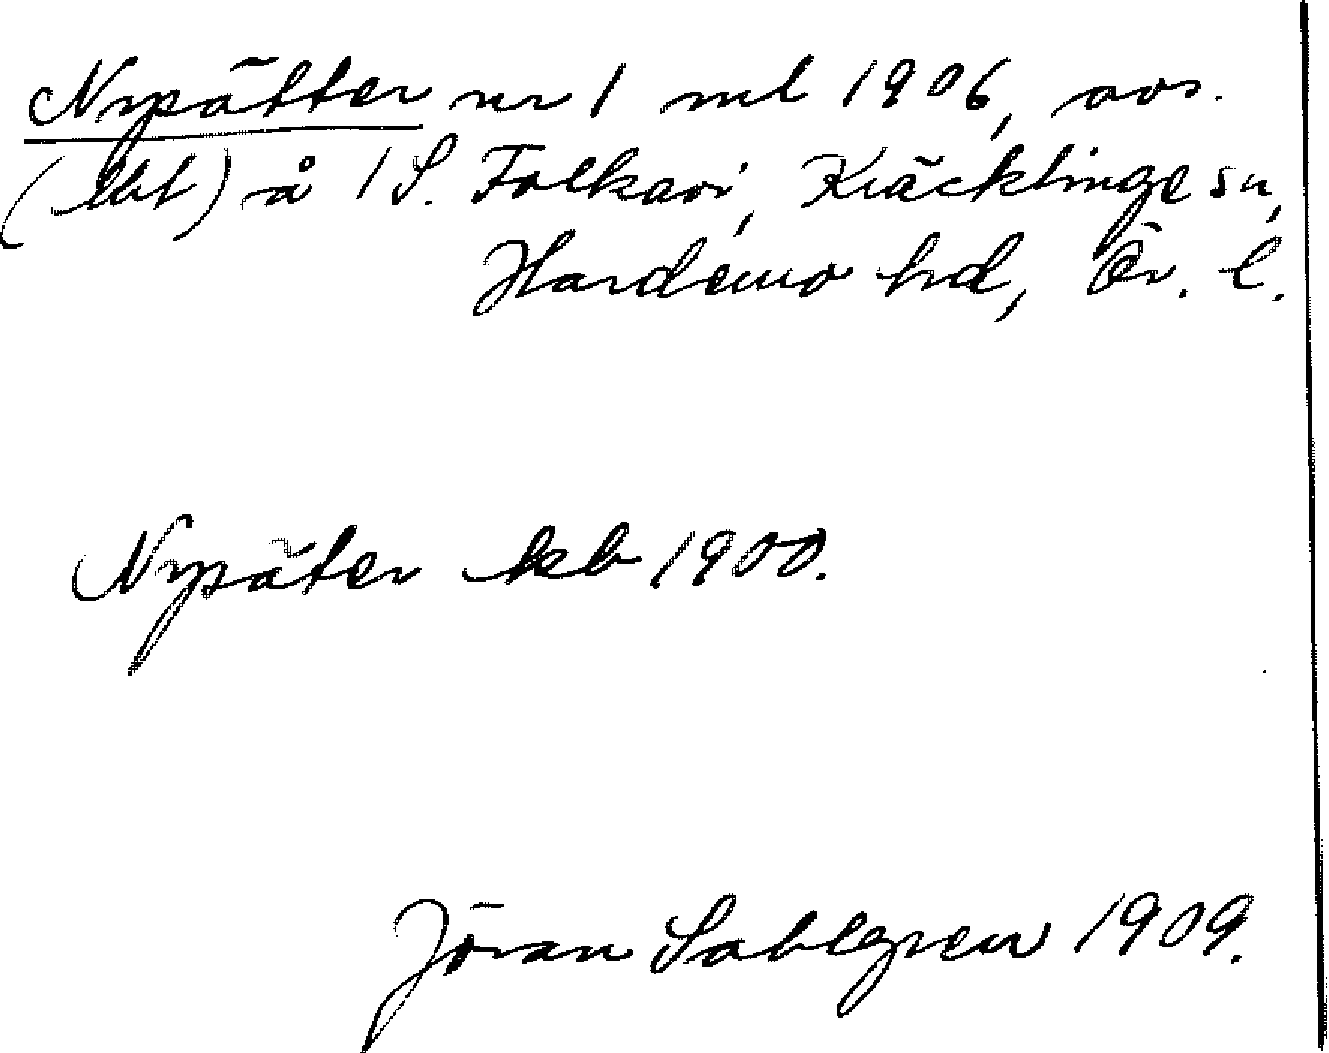 Nypätter nr 1 ml 1906, avs.
(lht) å 1 S. Folkavi, Kräcklinge sn,
Hardemo hd, Ör. l.
Nypäter kb 1900.
Jöran Sahlgren 1909.